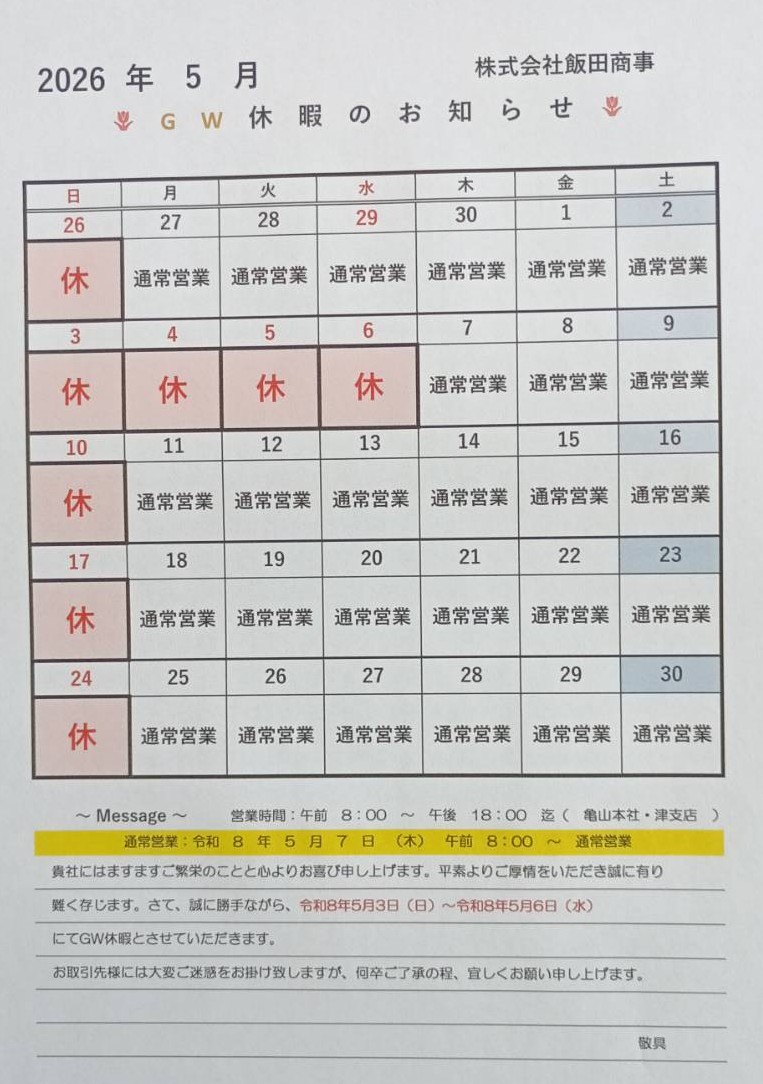 2026 年 5 月
株式会社飯田商事
GW休暇のお知らせ
日 月 火 水 木 金 土
26 27 28 29 30 1 2
休 通常営業 通常営業 通常営業 通常営業 通常営業 通常営業
3 4 5 6 7 8 9
休 休 休 休 通常営業 通常営業 通常営業
10 11 12 13 14 15 16
休 通常営業 通常営業 通常営業 通常営業 通常営業 通常営業
17 18 19 20 21 22 23
休 通常営業 通常営業 通常営業 通常営業 通常営業 通常営業
24 25 26 27 28 29 30
休 通常営業 通常営業 通常営業 通常営業 通常営業 通常営業
～ Message ～ 営業時間：午前 8：00 ～ 午後 18：00 迄（ 亀山本社・津支店 ）
通常営業：令和 8 年 5 月 7 日 （木） 午前 8：00 ～ 通常営業
貴社にはますますご繁栄のことと心よりお喜び申し上げます。平素よりご厚情をいただき誠に有り
難く存じます。さて、誠に勝手ながら、令和8年5月3日（日）～令和8年5月6日（水）
にてGW休暇とさせていただきます。
お取引先様には大変ご迷惑をお掛け致しますが、何卒ご了承の程、宜しくお願い申し上げます。
敬具